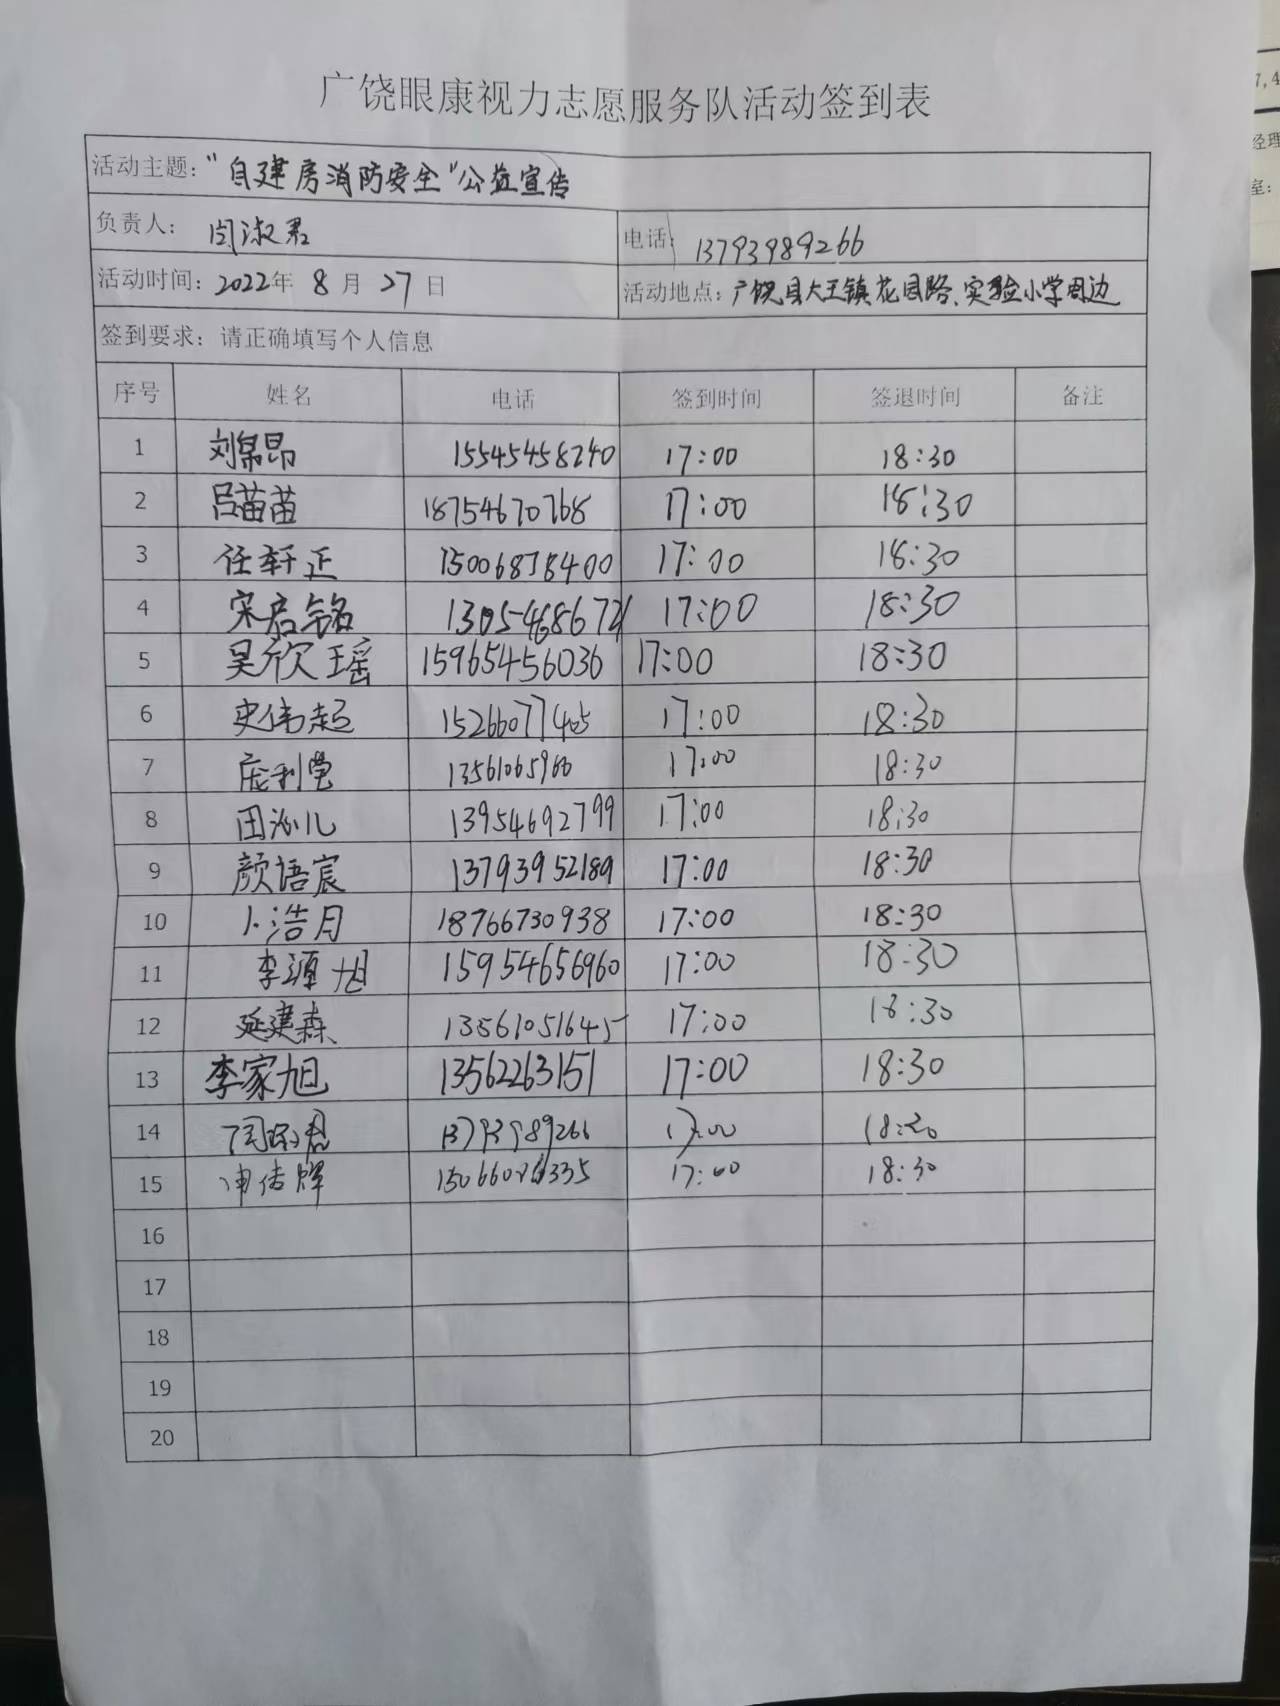 广饶眼康视力志愿服务队活动签到表
活动主题："自建房消防安全"公益宣传
负责人： 闫淑君 电话： 13793989266
活动时间：2022年 8月 27日 活动地点：广饶县大王镇花园路、实验小学周边
签到要求：请正确填写个人信息
序号 姓名 电话 签到时间 签退时间 备注
1 刘帛昂 15545458240 17:00 18:30
2 吕苗苗 18754670768 17:00 18:30
3 任轩正 15006878400 17:00 18:30
4 宋启铭 17:00 18:30
5 吴欣瑶 15965456036 17:00 18:30
6 史伟超 17:00 18:30
7 庞利莹 13561065966 17:00 18:30
8 田沁儿 13954692799 17:00 18:30
9 颜语宸 13793952189 17:00 18:30
10 卜浩月 18766730938 17:00 18:30
11 李源旭 15954656960 17:00 18:30
12 延建森 13561051645 17:00 18:30
13 李家旭 13562263151 17:00 18:30
14 闫淑君 13793989266 17:00 18:30
15 17:00 18:30
16
17
18
19
20
7,4
经理
室：